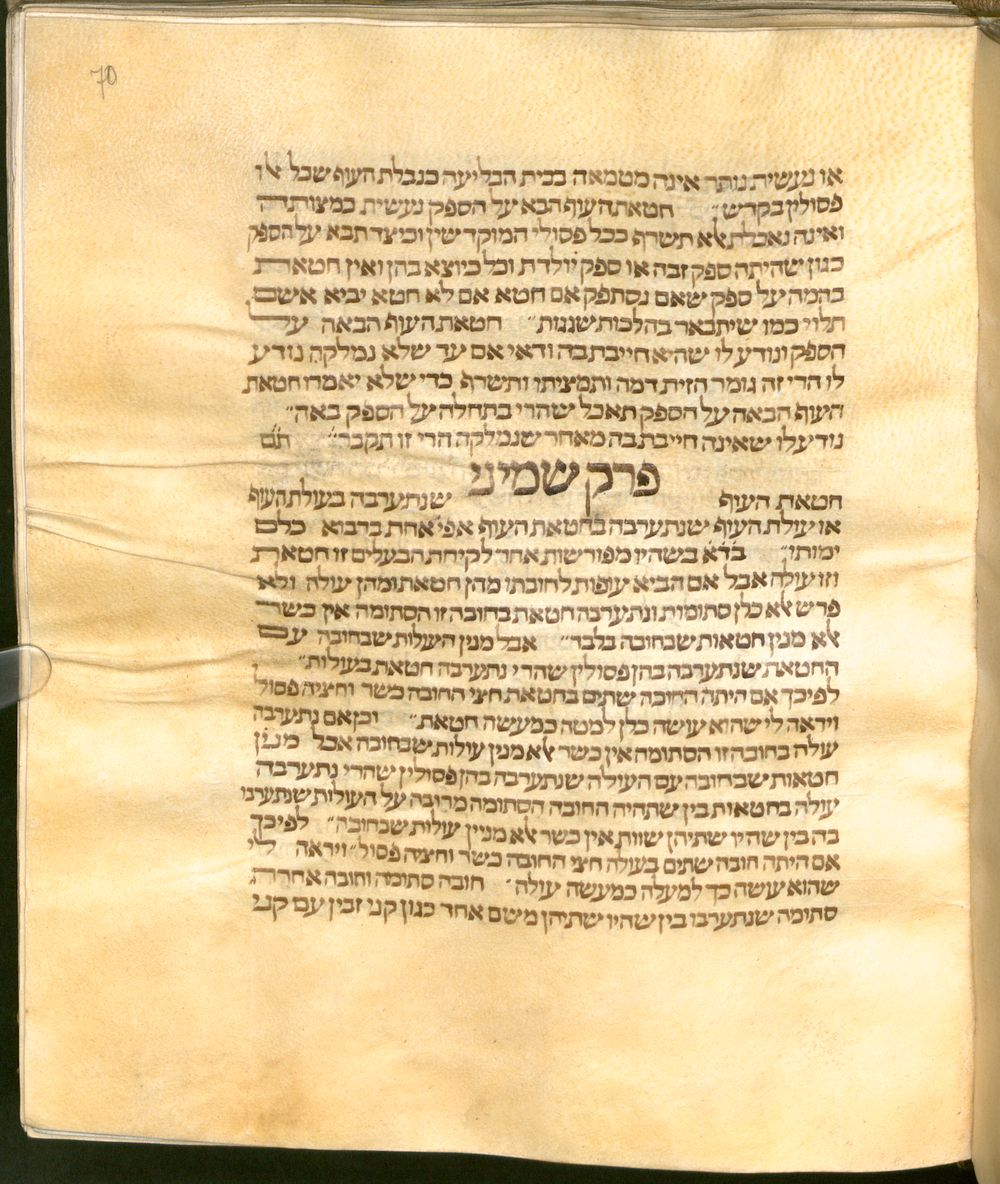 70
או נעשית נותר אינה מטמאה בבית הבליעה כנבלת העוף שכל אלו
פסולין בקדש״ חטאת העוף הבא על הספק נעשית כמצותה
ואינה נאכלת אלא תשרף ככל פסולי המוקדשין וכיצד תבא על הספק
כגון שהיתה ספק זבה או ספק יולדת וכל כיוצא בהן ואין חטאת
בהמה על ספק שאם נסתפק אם חטא אם לא חטא יביא אשם
תלוי כמו שיתבאר בהלכות שגגות״ חטאת העוף הבאה על
הספק ונודע לו שהיא חייבת בה ודאי אם עד שלא נמלקה נודע
לו הרי זה גומר הזית דמה ותמציתו ותישרף כדי שלא יאמרו חטאת
העוף הבאה על הספק תאכל שהרי בתחלה על הספק באה״
נודע לו שאינה חייבת בה מאחר שנמלקה הרי זו תקבר״
פרק שמיני
חטאת העוף שנתערבה בעולת העוף
או עולת העוף שנתערבה בחטאת העוף אפי׳ אחת ברבוא כלם
ימותו״ בד״א בשהיו מפורשות אחר לקיחת הבעלים זו חטאת
וזו עולה אבל אם הביא עופות לחובתו מהן חטאת ומהן עולה ולא
פרש אלא כלן סתומות ונתערבה חטאת בחובה זו הסתומה אין כשר
אלא מנין חטאות שבחובה בלבד״ אבל מנין העולות שבחובה עם
החטאת שנתערבה בהן פסולין שהרי נתערבה חטאת בעולות״
לפיכך אם היתה החובה שתים בחטאת חצי החובה כשר וחציה פסול
ויראה לי שהוא עושה כלן למטה כמעשה חטאת״ וכן אם נתערבה
עולה בחובה זו הסתומה אין כשר אלא מנין עולות שבחובה אבל מנין
חטאות שבחובה עם העולה שנתערבה בהן פסולין שהרי נתערבה
עולה בחטאות בין שתהיה החובה הסתומה מרובה על העולות שנתערבו
בה בין שהיו שתיהן שוות אין כשר אלא מנין עולות שבחובה״ לפיכך
אם היתה חובה שתים בעולה חצי החובה כשר וחציה פסול״ ויראה לי
שהוא עושה כך למעלה כמעשה עולה׳ חובה סתומה וחובה אחרת
סתומה שנתערבו בין שהיו שתיהן משם אחד כגון קני זבין עם קני